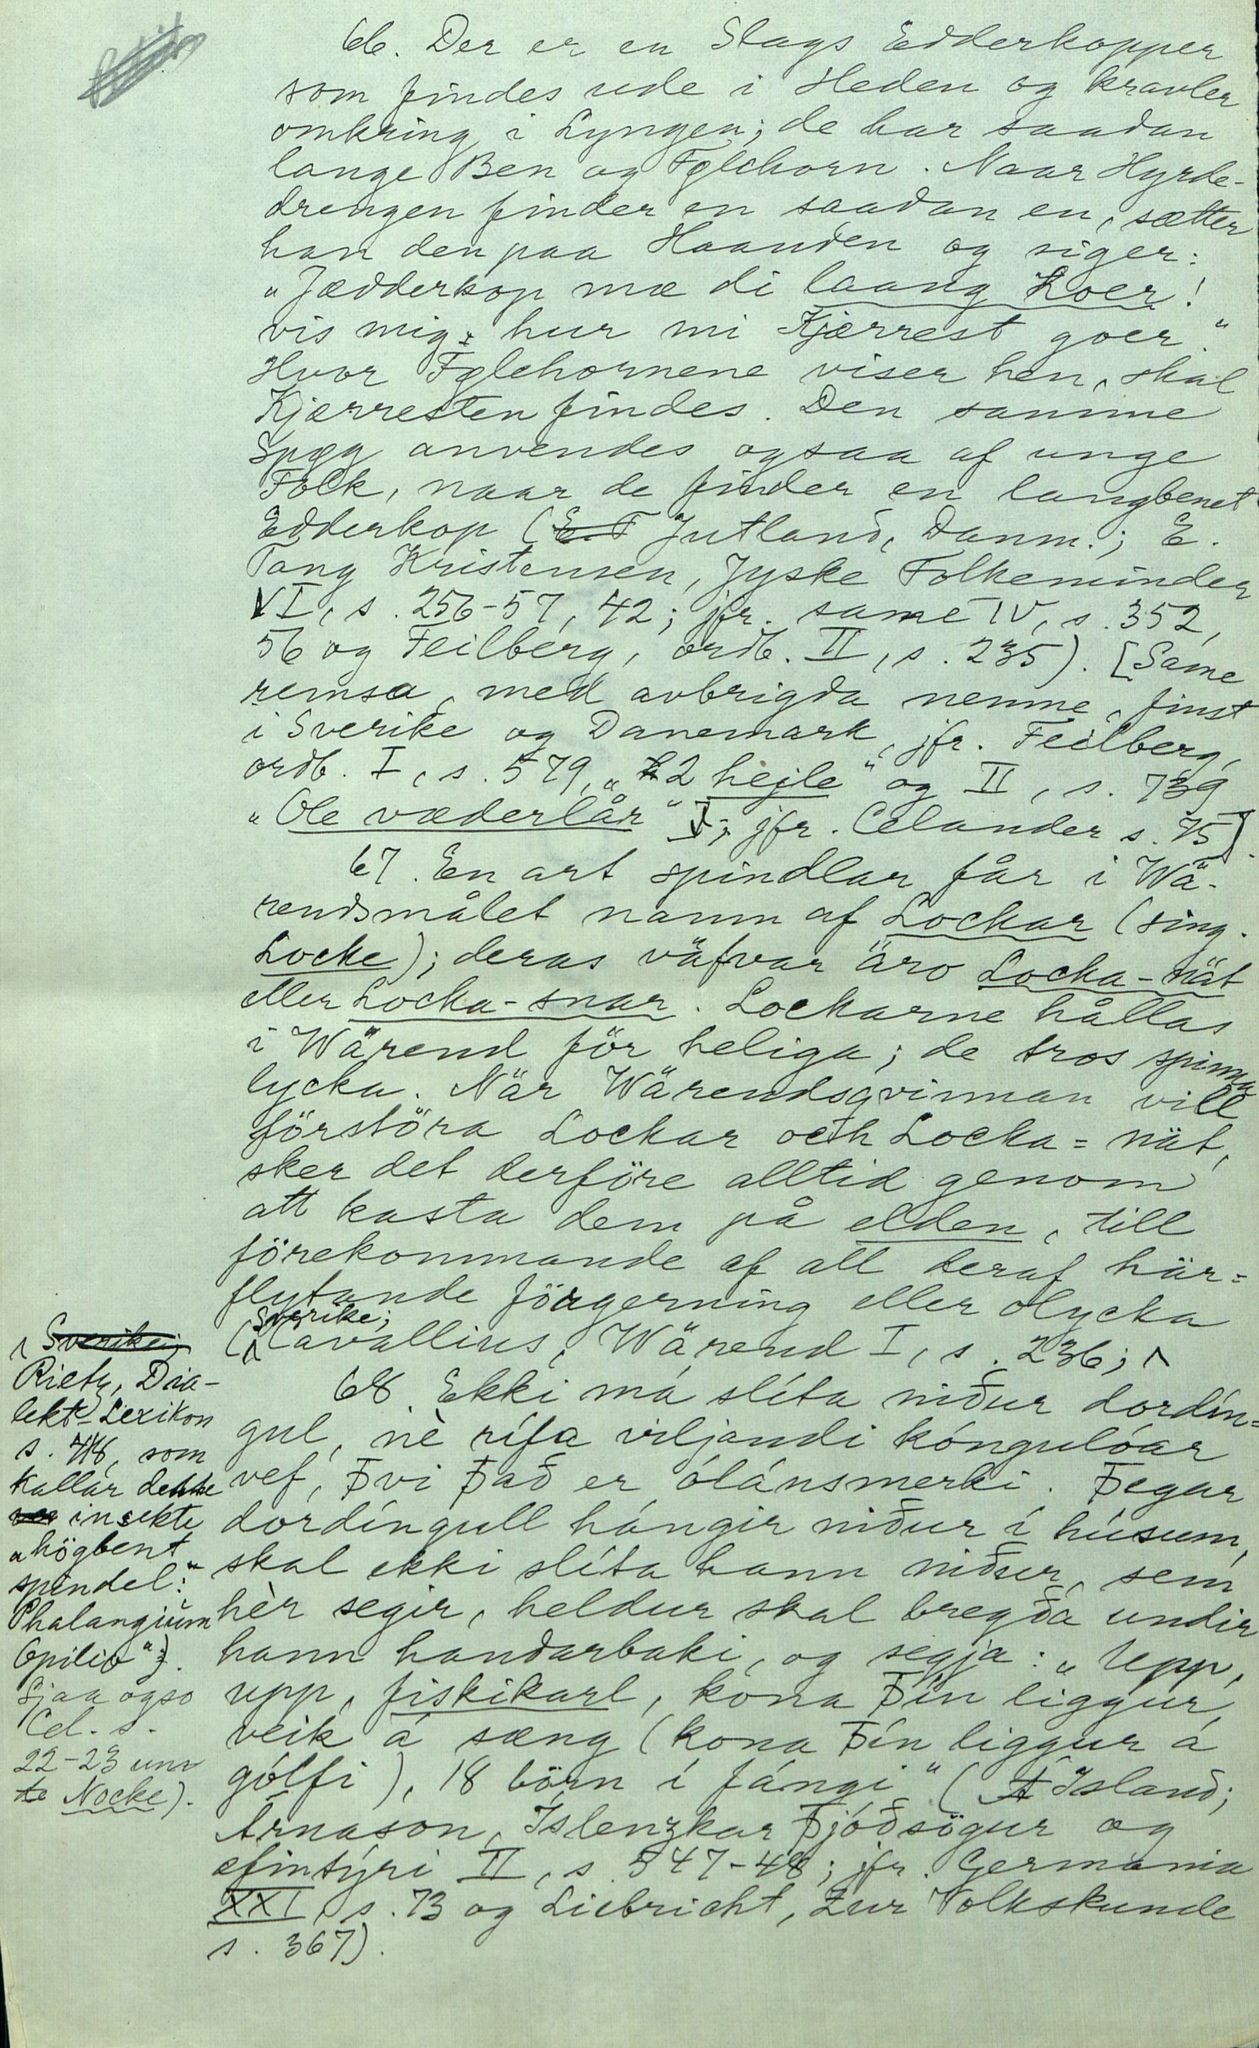 66. Der er en Slags Edderkopper
som findes ude i Heden og kravler
omkring i Lyngen; de har saadan
lange Ben og Følehorn. Naar Hyrde-
drengen finder en saadan en, sætter
han den paa Haanden og siger:
"Jædderkop mæ di laang Loer!
vis mig, hur mi Kjærrest goer."
Hvor Følehornene viser hen, skal
Kjærresten findes. Den samme
Spøg anvendes ogsaa af unge
Folk, naar de finder en langbenet
Edderkop (E. T Jutland, Danm.; E.
Tang Kristensen, Jyske Folkeminder
VI, s. 256-57, 42; jfr. same IV, s. 352,
56 og Feilberg, ordb. II, s. 235). [Same
remsa, med avbrigda nemne, finst
i Sverike og Danemark, jfr. Feilberg,
ordb. I, s. 579, "2 hejle" og II, s. 739
"Ole væderlår"; jfr. Celander s. 75].
67. En art spindlar får i Wä-
rendsmålet namn af Lockar (sing.
Locke); deras väfvar äro Locka-nät
eller Locka-snar. Lockarne hållas
i Wärend för heliga; de tros spinna
lycka. När Wärendsqvinnan vill
förstöra Lockar och Locka=nät,
sker det derföre alltid genom
att kasta dem på elden, till
förekommande af all deraf här=
flytande förgerning eller olycka
(Sverike; Cavallius, Wärend I, s. 236;
Sverike;
Rietz, Dia-
lekt-Lexikon
s. 416, som
kallar denne
insekte
"högbent
spindel:"
Phalangium
Opilio").
Sjaa ogso
Cel. s.
22-23 um
Nocke).
68. Ekki má slíta niður dordín=
gul, nè rífa viljandi kóngulóar
vef, því það er ólánsmerki. Þegar
dordíngull hángir niður í húsum,
skal ekki slíta hann niður, sem
hèr segir, heldur skal bregða undir
hann handarbaki, og segja: "Upp,
upp, fiskikarl, kona þín liggur,
veik á sæng (kona þín liggur á
gólfi), 18 börn í fángi" (Island;
Árnason, Íslenzkar þjóðsögur og
æfintýri II, s. 547-48; jfr. Germania
XXI, s. 73 og Liebricht, Zur Volkskunde
s. 367).